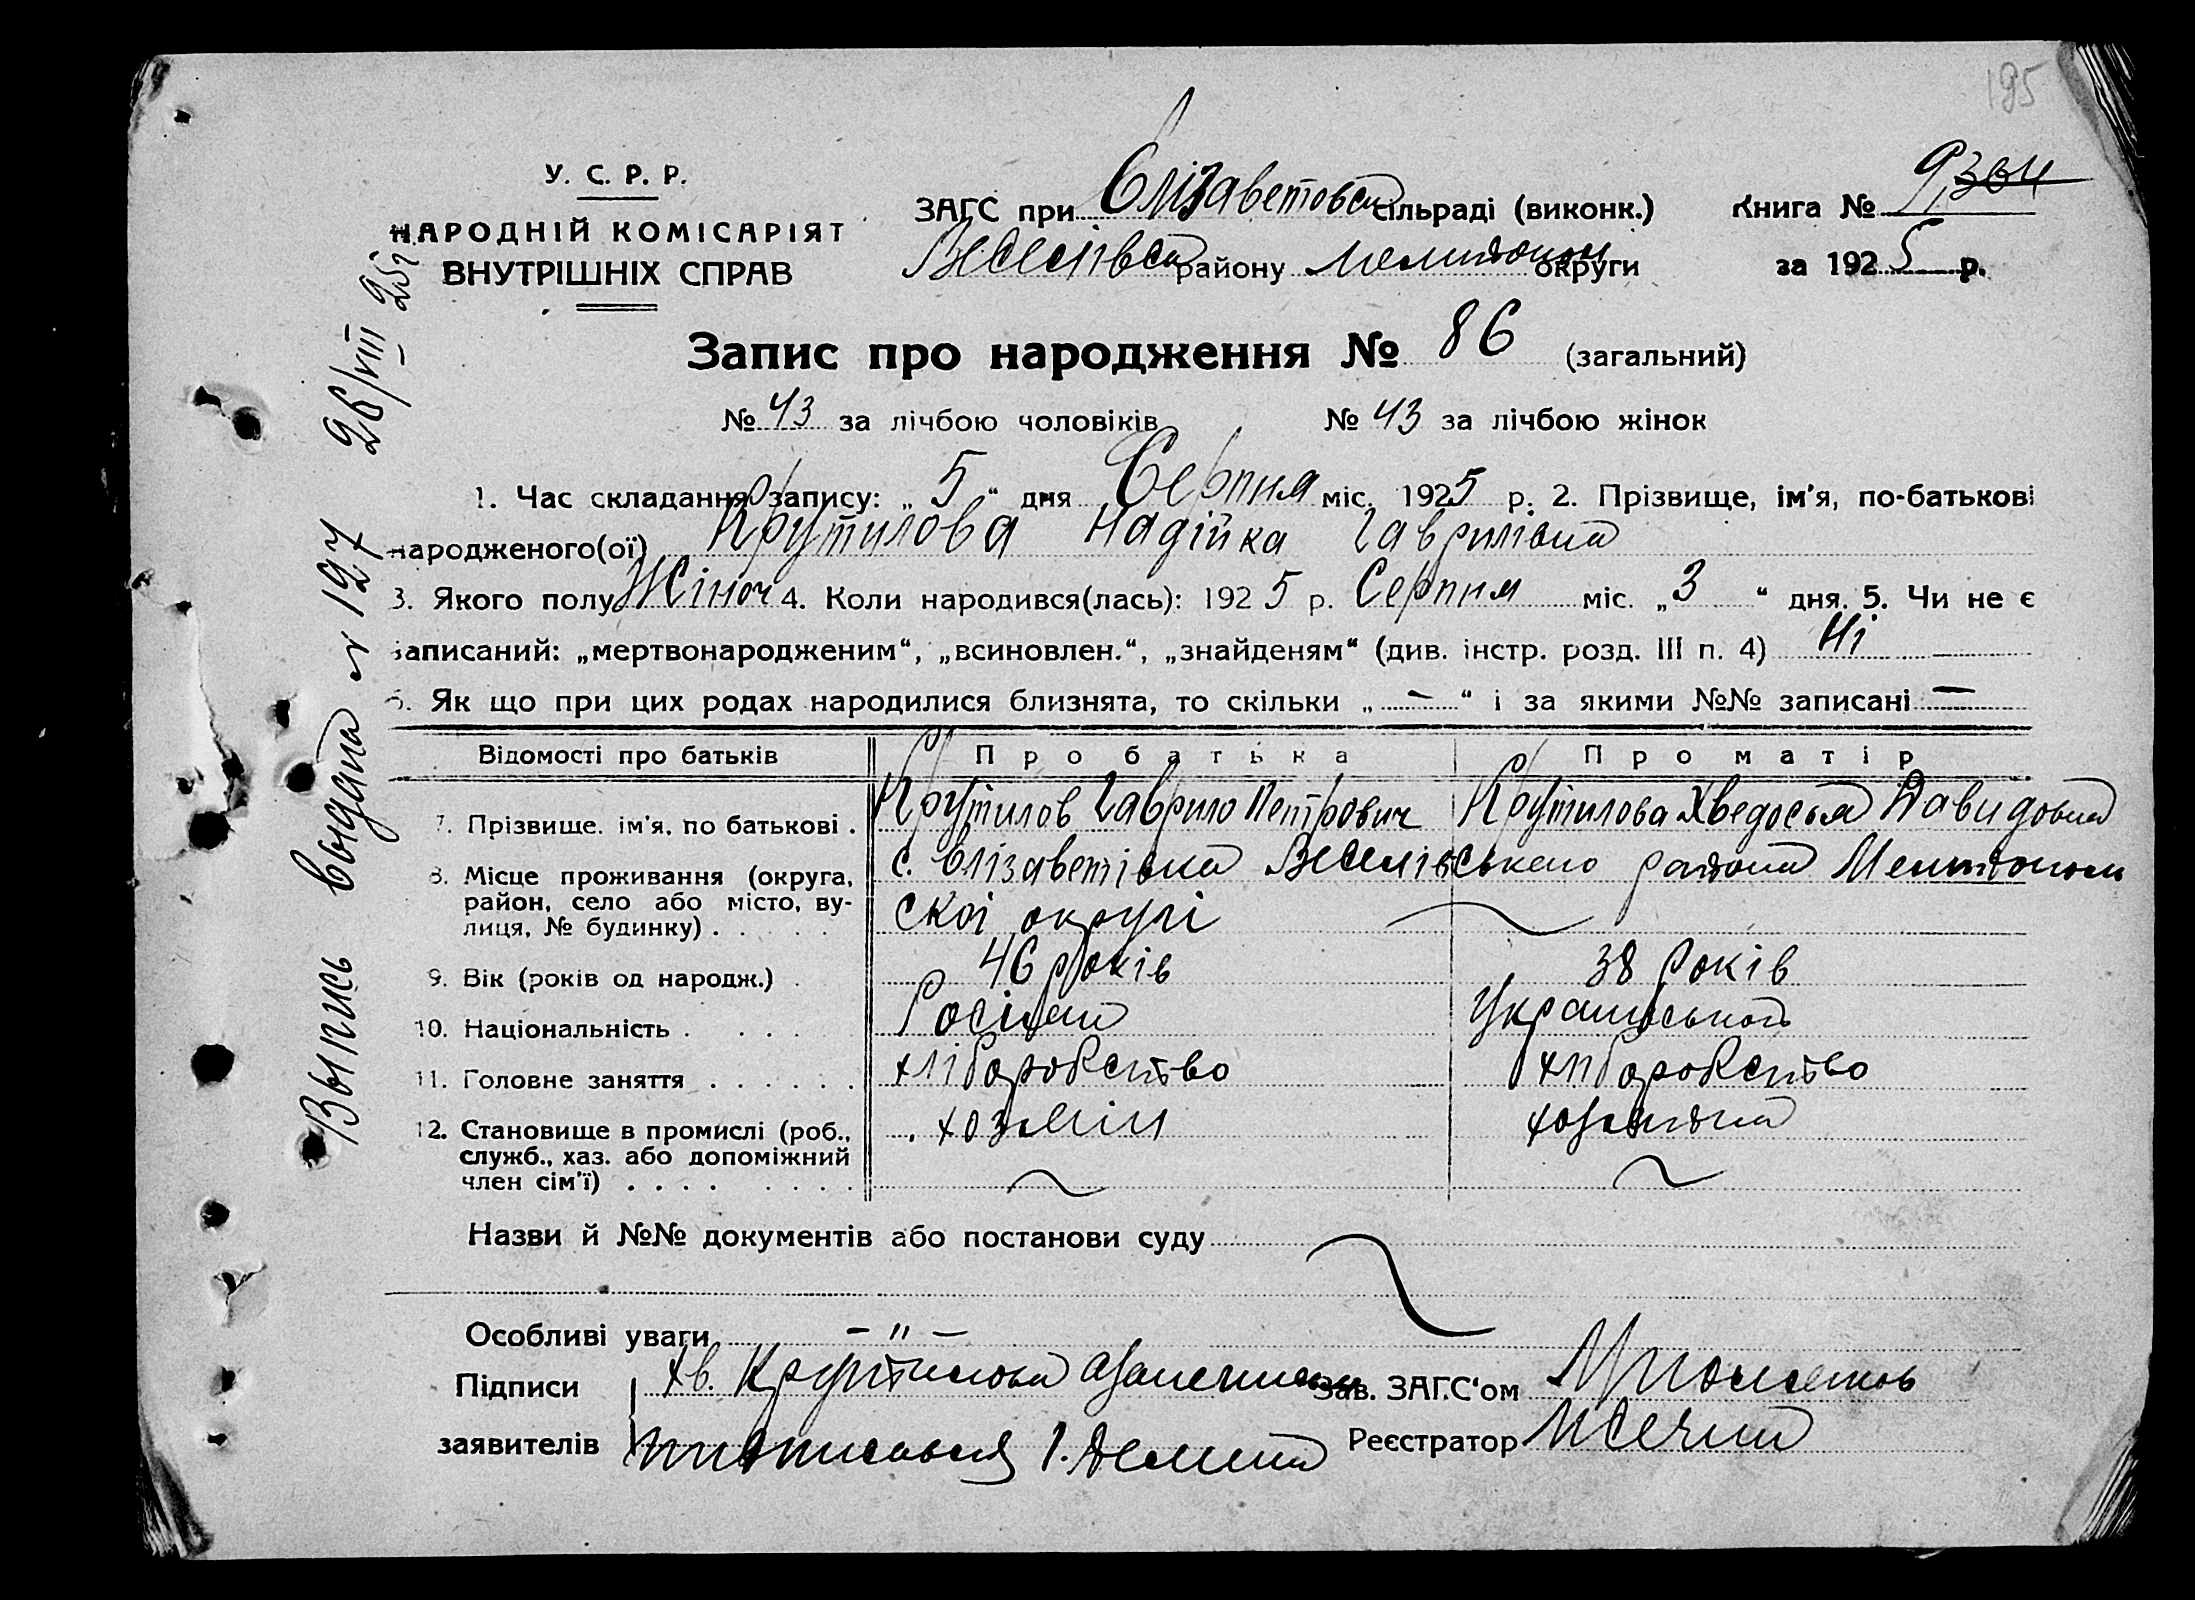 195
У. С. Р. Р.
НАРОДНІЙ КОМІСАРІЯТ
ВНУТРІШНІХ СПРАВ
ЗАГС при Єлізаветовск сільраді (виконк.) Книга № 9,
Веселівск району округи за 1925 р.
Запис про народження № 86 (загальний)
№ 43 за лічбою чоловіків № 43 за лічбою жінок
1. Час складання запису: „ 5 “ дня Серпня міс. 1925 р. 2. Прізвище, ім'я, по-батькові
народженого(ої) Крутилова Надійка Гаврилівна
3. Якого полу Жіноч 4. Коли народився(лась): 1925 р. Серпня міс. „ 3 “ дня. 5. Чи не є
записаний: „мертвонародженим“, „всиновлен.“, „знайденям“ (див. інстр. розд. III п. 4) Ні
6. Як що при цих родах народилися близнята, то скільки „ — “ і за якими №№ записані —
Відомості про батьків Про батька Про матір
7. Прізвище, ім'я, по батькові . Крутилов Гаврило Петрович Крутилова Хведосья Давидовна
8. Місце проживання (округа, с. Єлізаветівка Веселівського района Мелитополь
район, село або місто, ву- скоі округі
лиця, № будинку) .
9. Вік (років од народж.) . 46 років 38 років
10. Національність . Росіян
11. Головне заняття . хліборобство хліборобство
12. Становище в промислі (роб., хозяїн хозяйка
служб., хаз. або допоміжний
член сім'ї) .
Назви й №№ документів або постанови суду
Особливі уваги — " —
Підписи Хв. Крутилова Зав. ЗАГС'ом
заявителів Реєстратор
Выпись выдана № 127 26/VIII 25 г.